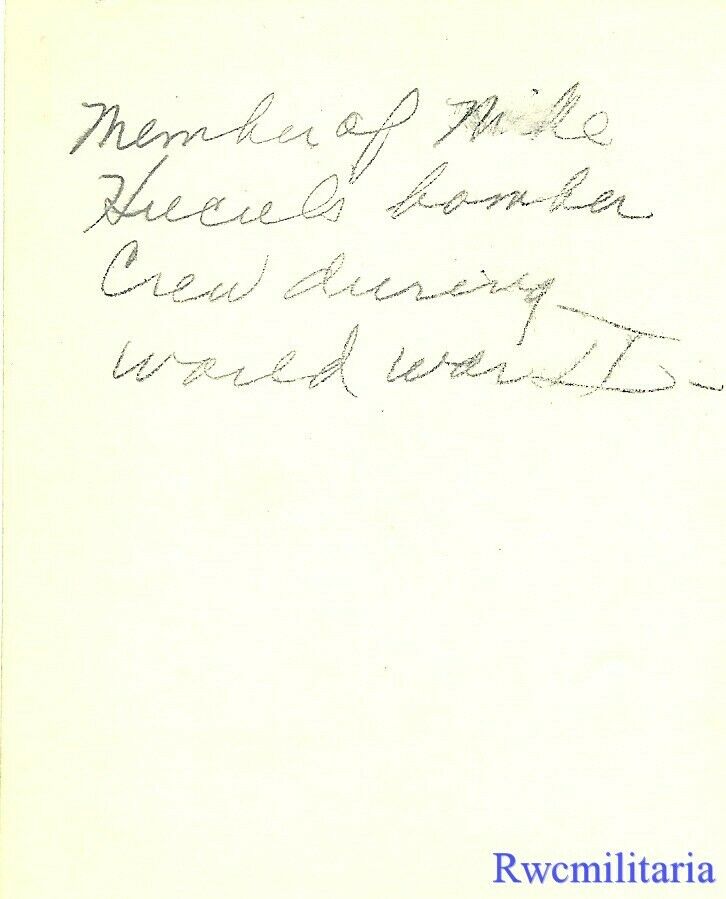 Member of Mike
Hucul's bomber
Crew during
World War II -
Rwcmilitaria